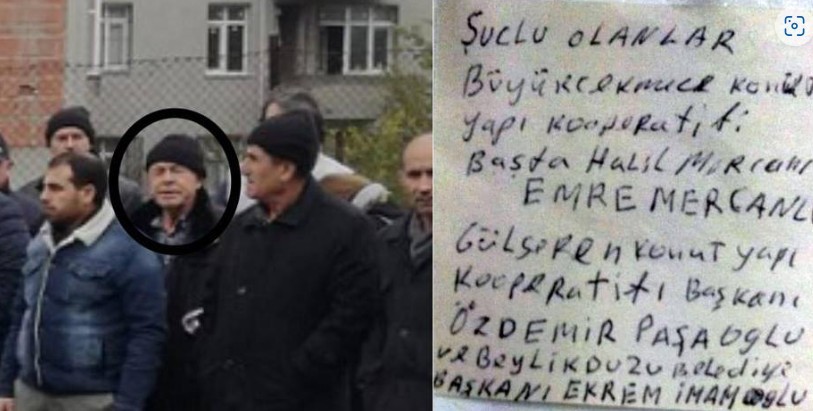 ŞUCLU OLANLAR
Büyükçekmece konut
yapı kooperatifi
Başta Halil Mercanı
EMRE MERCANLI
Gülşeren konut yapı
kooperatifi Başkanı
ÖZDEMİR PAŞAOGLU
ve BEYLİKDUZU Belediye
BAŞKANI EKREM İMAMOğLU